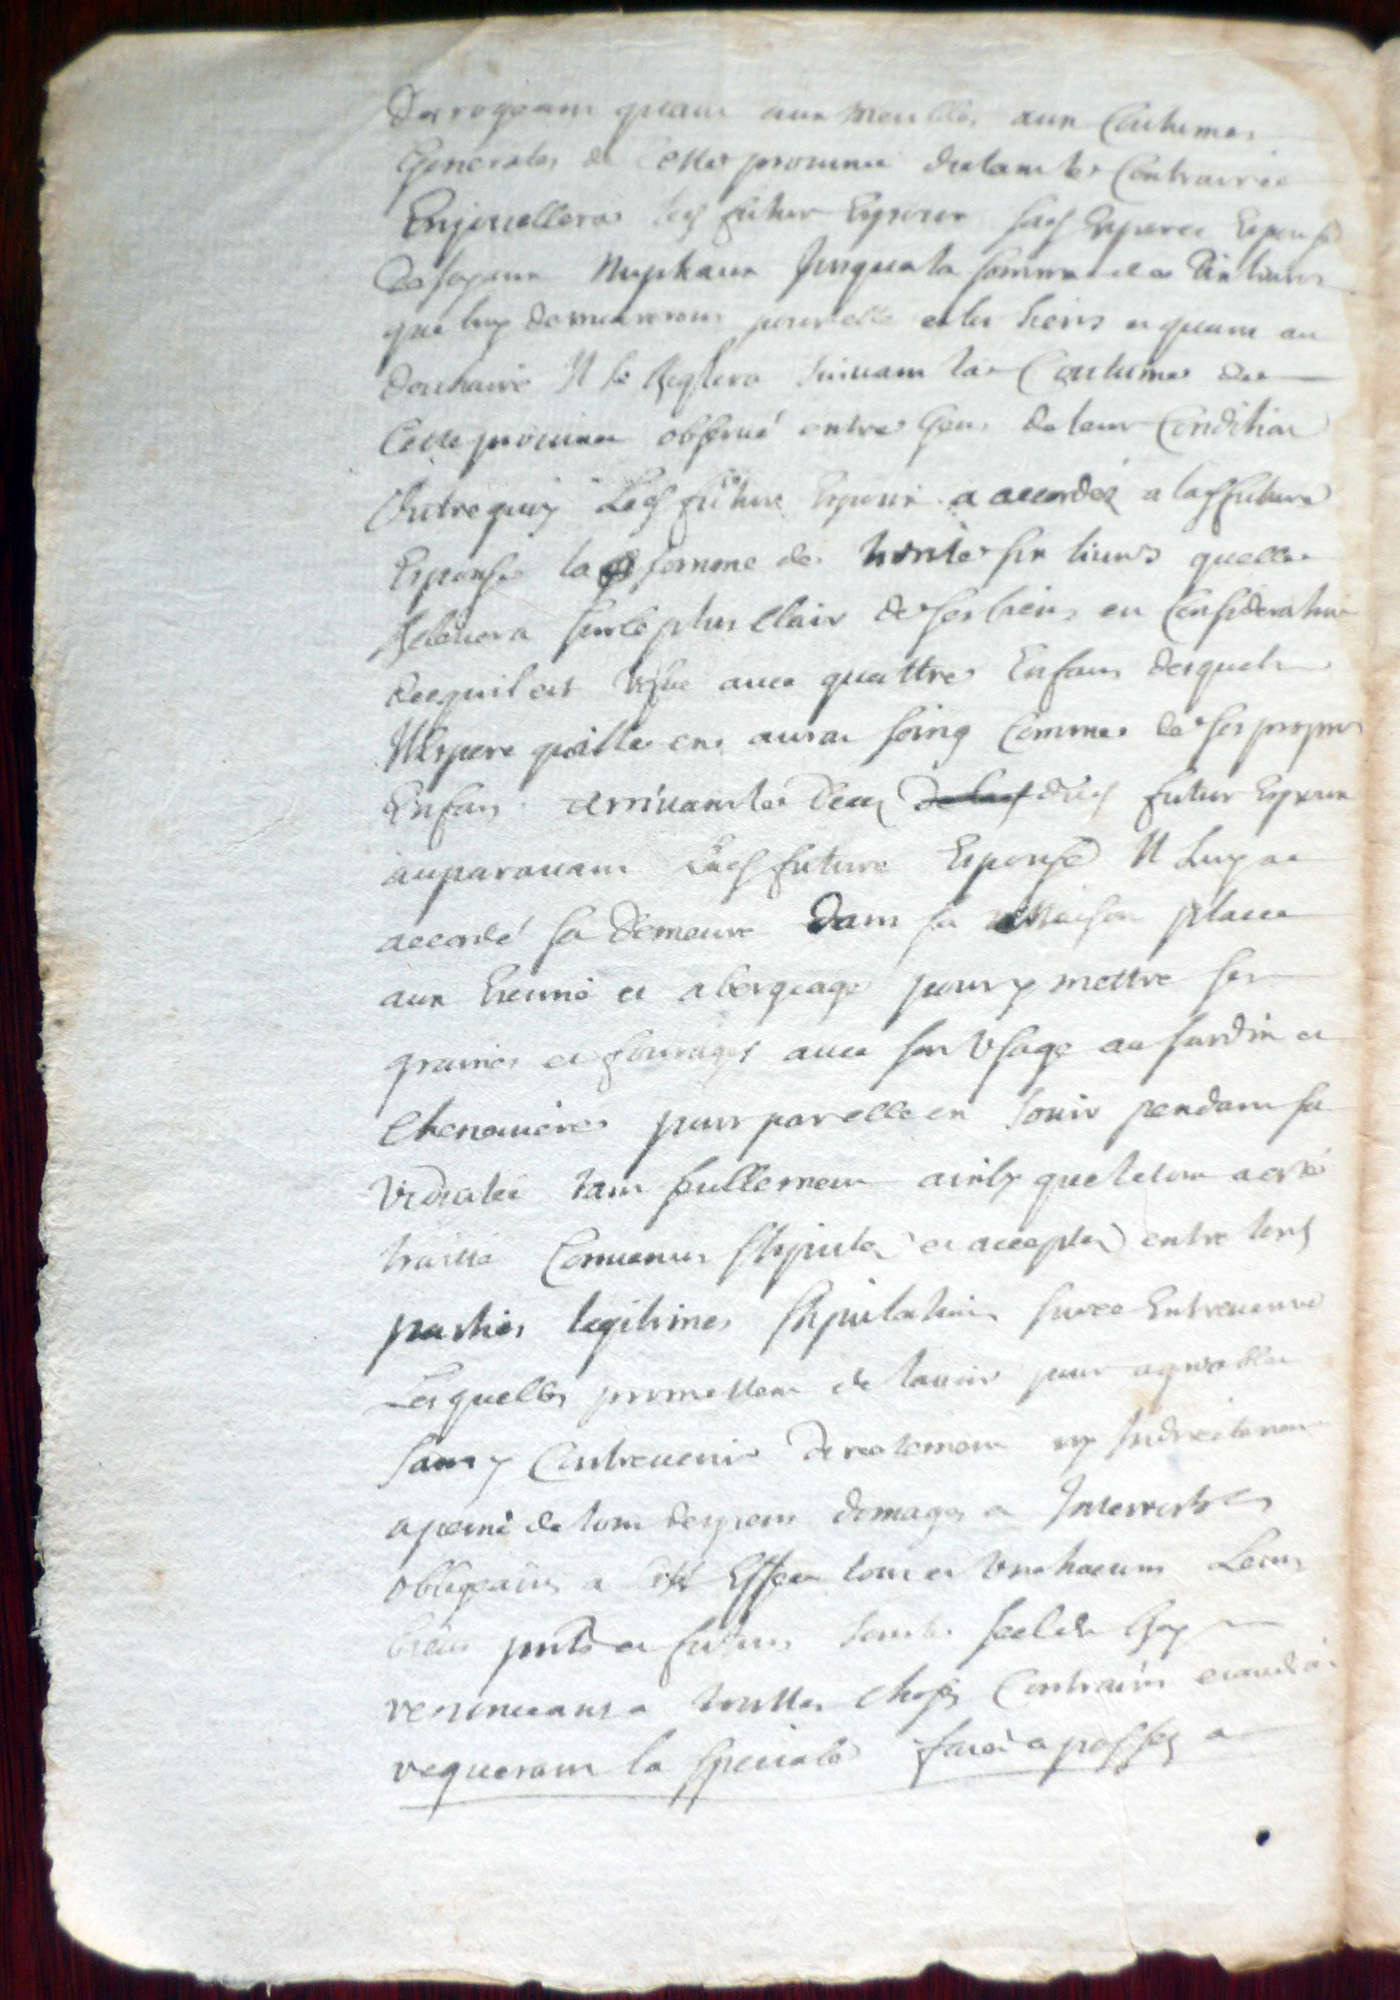 Derrogeant quant aux meubles aux Coutumes
Generales de Cette province dictant le Contraire
Enjouellera led futur Espoux lad Espere Espouse
de Joyaux Nuptiaux Jusqua la somme de Dix livres
que luy demeureront pour elle et les siens et quant au
douhaire Il se Reglera suivant la Coutume de
Cette province observé entre Gens de leur Condition
Outre quoy Led futur Espoux a accordez a lad future
Espouse la somme de trente six livres quelle
Relevera sur le plus Clair de ses biens en Consideration
de ce quil est vefve avec quattre Enfans desquels
Il Espere quelle en aura soing Comme de ses propres
Enfans arrivant le deces dud futur Espoux
auparavant Lad future Espouse Il Luy a
accordé sa demeure dans sa Maison place
aux Escurie et abergeage pour y mettre ses
graines et fourages avec son Usage au Jardin et
Cheneviere pour par elle en Jouir pendant sa
viduitée tant seullement ainsy que le tout a esté
traitté Convenus stipulez et acceptez entre lesd
parties legitimes stipulation sur ce Entrevenue
Lesquelles promettent de lavoir pour agreable
sans y Contrevenir directement ny Indirectement
a peine de tous despens domages et Interrests
obligeans a cest Effect tous et Un chacuns Leurs
biens pnts et futurs sous le scel de
renonceant a touttes choses Contraires
requerant la speciale faict et passez a